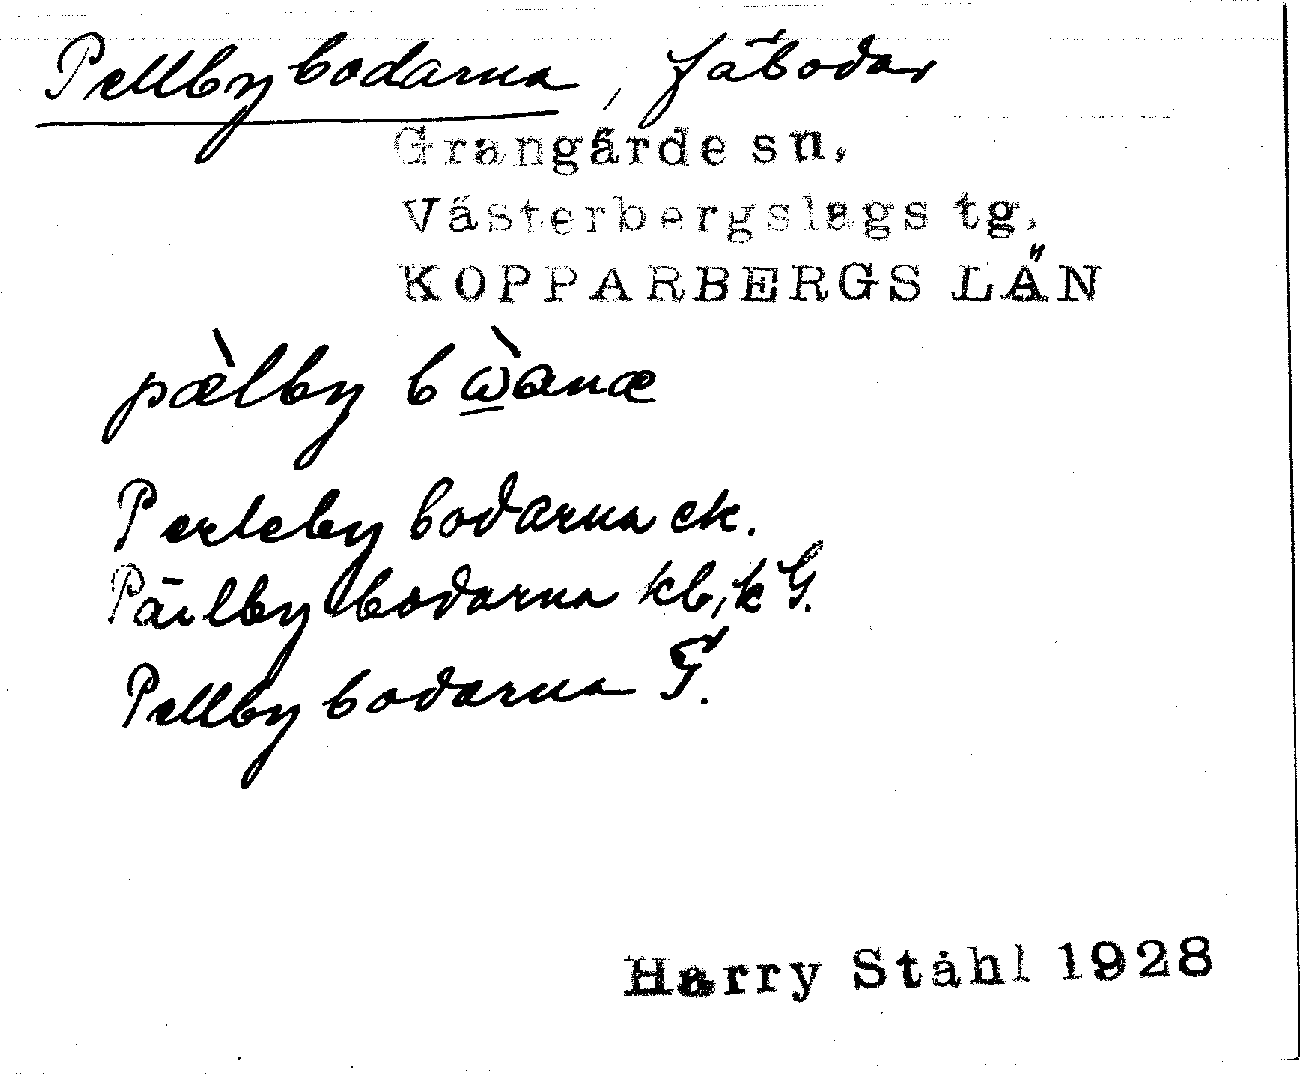 Pellbybodarna, fäbodar
Grangärde sn.
Västerbergslags tg.
KOPPARBERGS LÄN
pæ̀lby bὼ̲anæ
Perlebybodarna ek.
Pärlbybodarna kb, k G.
Pellbybodarna G.
Harry Ståhl 1928